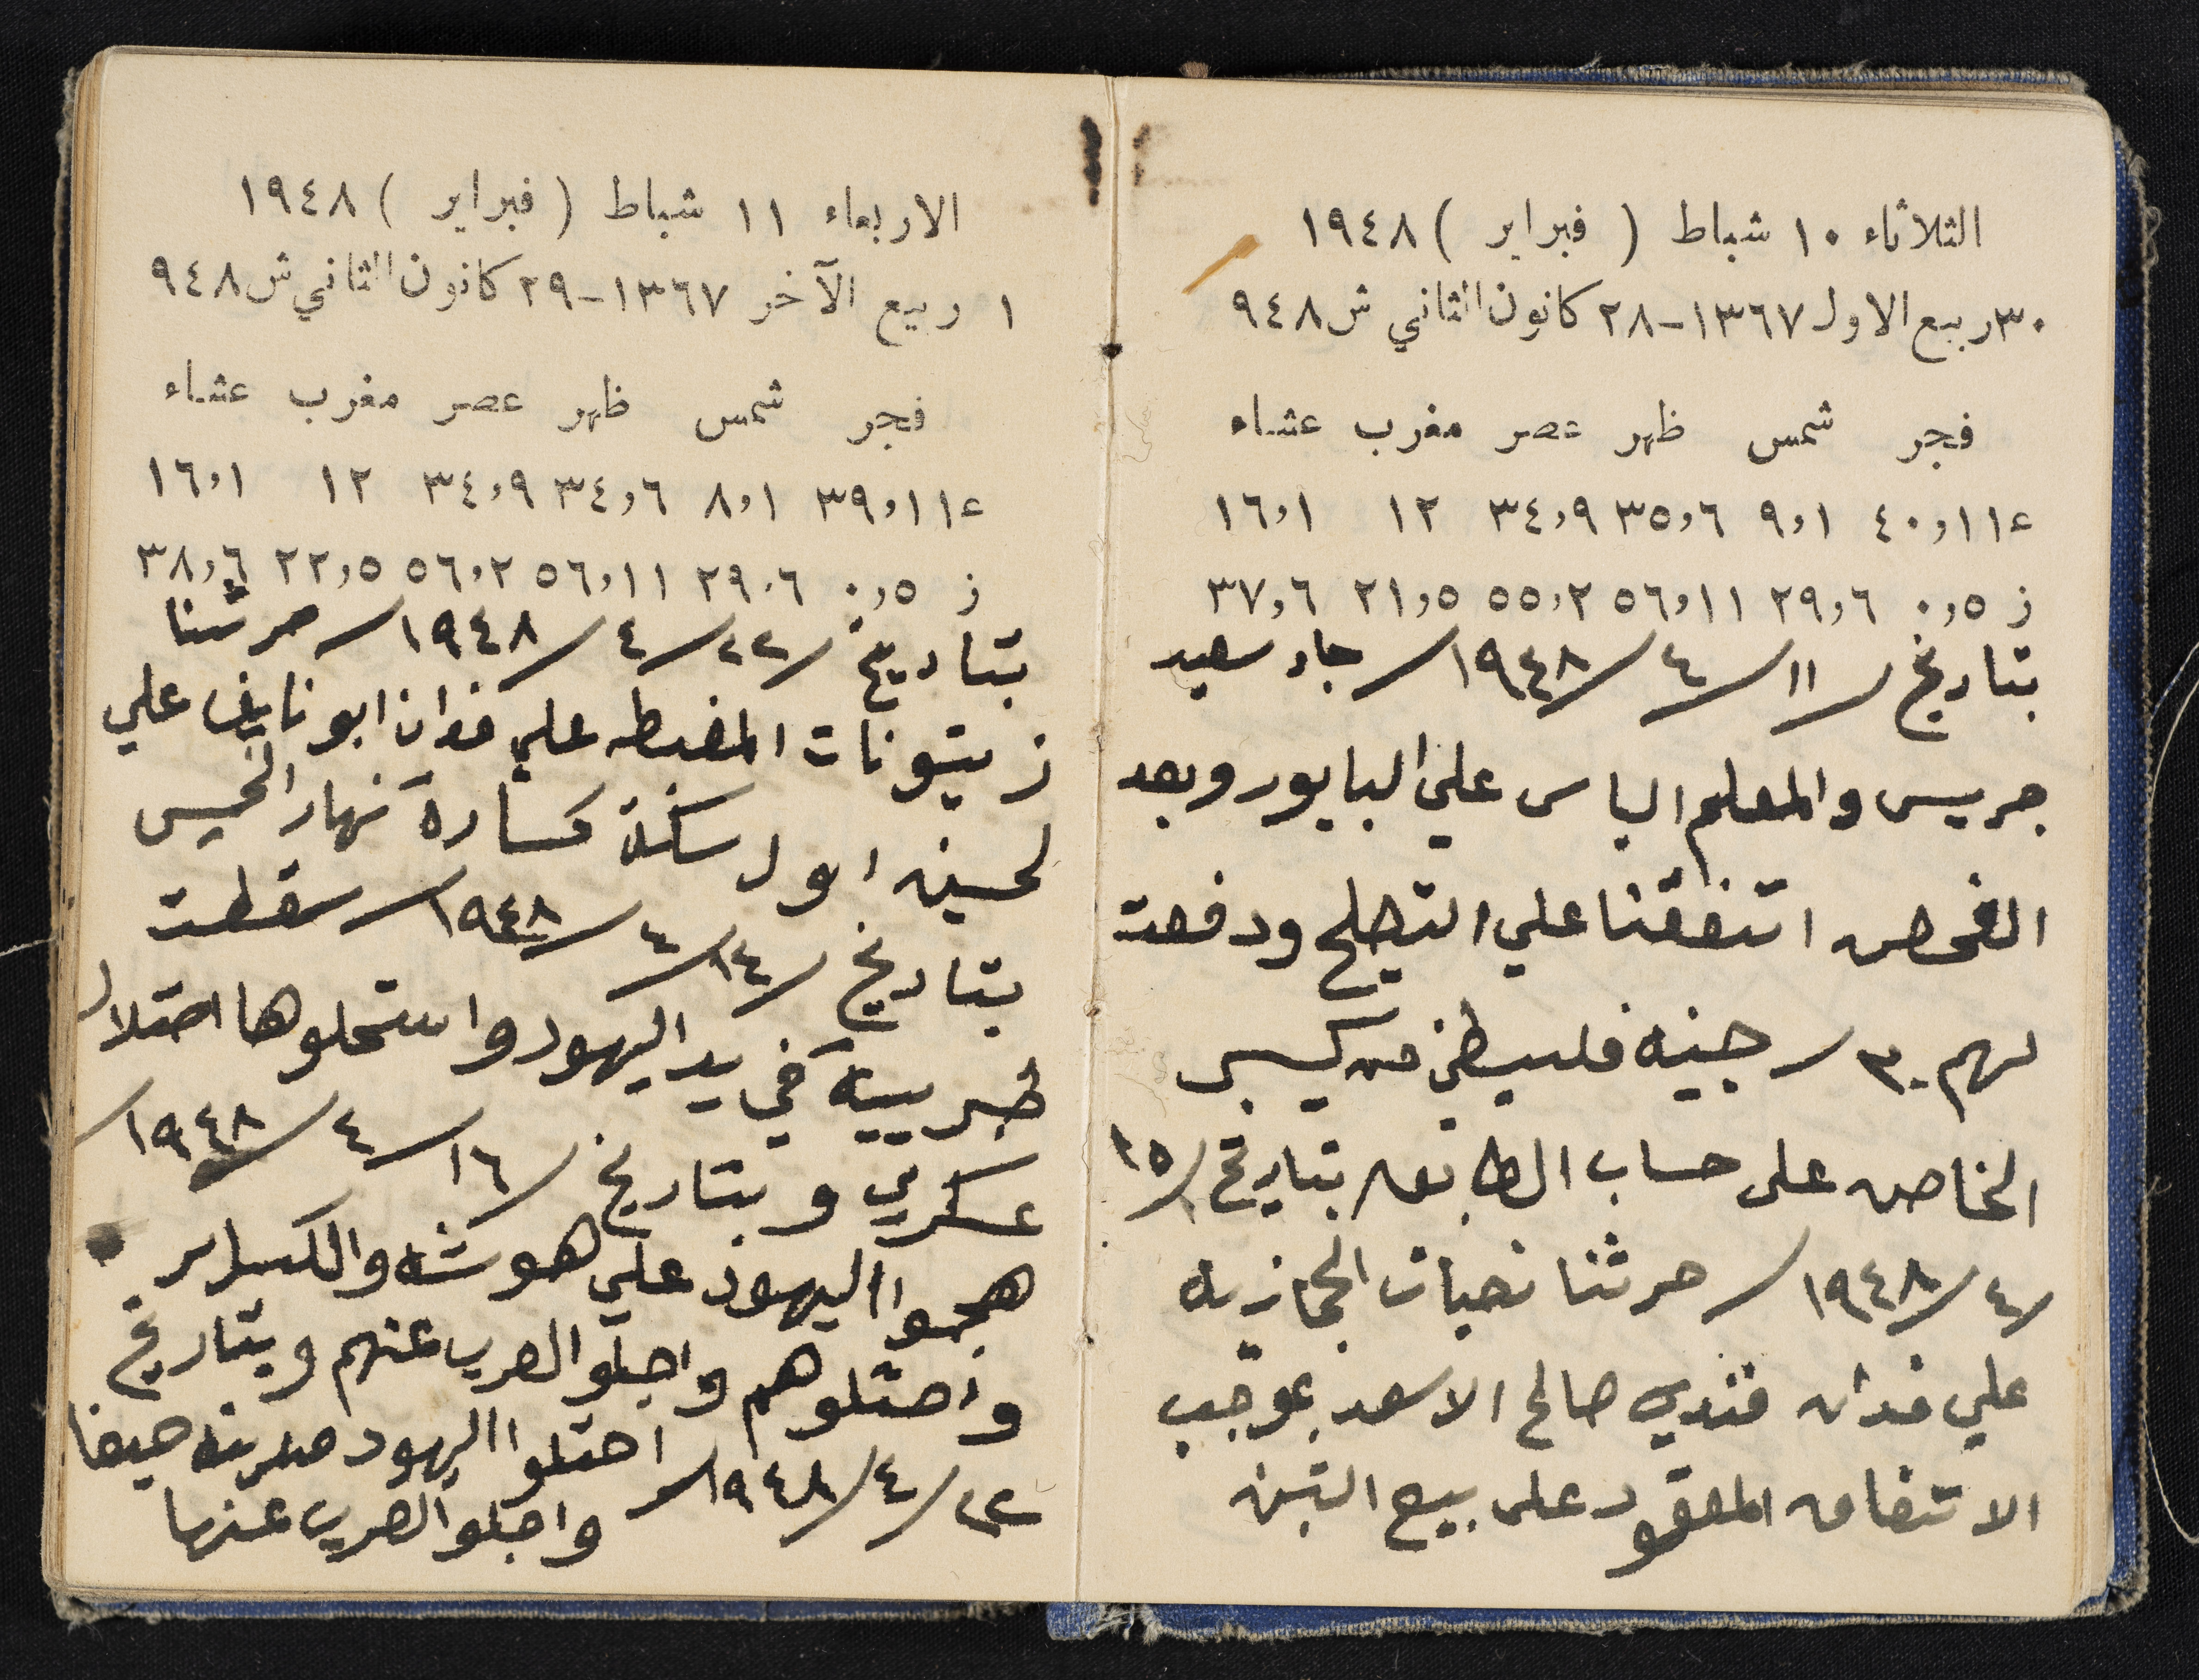 الثلاثاء ١٠ شباط ( فبراير ) ١٩٤٨
٣٠ ربيع الاول ١٣٦٧-٢٨ كانون الثاني ش ٩٤٨
فجر شمس ظهر عصر مغرب عشاء
ع ٤٠,١١ ٩,١ ٣٥,٦ ٣٤,٩ ١٢ ١٦,١
ز ٠,٥ ٢٩,٦ ٥٦,١١ ٥٥,٢ ٢١,٥ ٣٧,٦
بتاريخ /١١/٤/١٩٤٨/ جاء سعيد
جريس والمعلم الياس علي البابور وبعد
الفحص اتفقنا علي التصليح ودفعت
لهم ٣٠/ جنيه فلسطيني من كيسي
الخاص على حساب الطابعه بتاريخ /١٥
/٤/١٩٤٨/ حرثنا نصبات الحجازيه
علي فدان فندي صالح الاسعد بموجب
الاتفاق المعقود على بيع التبن
الاربعاء ١١ شباط ( فبراير ) ١٩٤٨
١ ربيع الآخر ١٣٦٧-٢٩ كانون الثاني ش ٩٤٨
فجر شمس ظهر عصر مغرب عشاء
ع ٣٩,١١ ٨,١ ٣٤,٦ ٣٤,٩ ١٢ ١٦,١
ز ٠,٥ ٢٩,٦ ٥٦,١١ ٥٦,٢ ٢٢,٥ ٣٨,٦
بتاريخ /٢٢/٤/١٩٤٨/ حرثنا
زيتونات علي فدان ابو نايف علي
لحسين اول سكة كسارة نهار الخميس
بتاريخ /١٤/٤/١٩٤٨/ سقطت
طبرييه في يد اليهود واستحلوها احتلال
عسكري وبتاريخ /١٦/٤/١٩٤٨/
هجموا اليهود علي هوشه والكساير
واحتلوهم واجلو العرب عنهم وبتاريخ
٢٢/٤/١٩٤٨/ احتلوا اليهود مدينه حيفا
واجلو العرب عنها